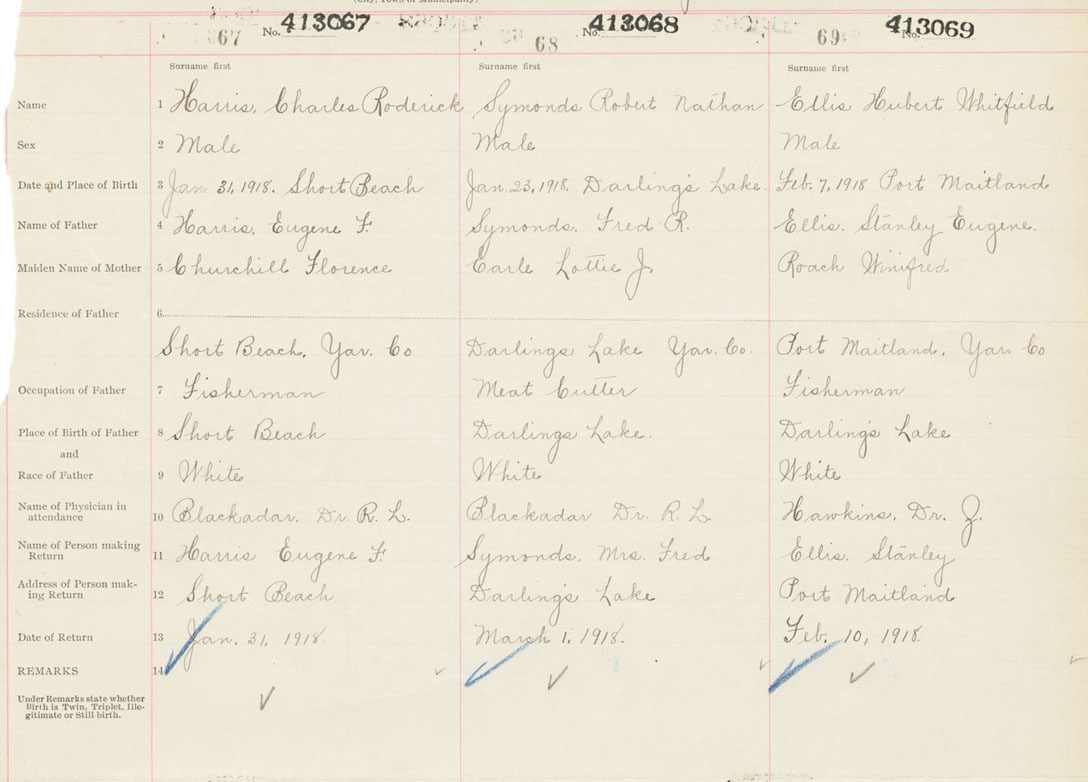 (City, Town or Municipality)
No. 413067 No. 413068 No. 413069
67 68 69
Surname first Surname first Surname first
Name 1 Harris, Charles Roderick Symonds Robert Nathan Ellis Hubert Whitfield
Sex 2 Male Male Male
Date and Place of Birth 3 Jan 31, 1918. Short Beach Jan. 23, 1918. Darling's Lake. Feb. 7, 1918 Port Maitland
Name of Father 4 Harris, Eugene F. Symonds, Fred R. Ellis. Stanley Eugene.
Maiden Name of Mother 5 Churchill Florence Earle Lottie J. Roach Winifred
Residence of Father 6
Short Beach, Yar. Co Darlings Lake Yar. Co. Port Maitland, Yar. Co
Occupation of Father 7 Fisherman Meat Cutter Fisherman
Place of Birth of Father 8 Short Beach Darlings Lake. Darling's Lake
and
Race of Father 9 White White White
Name of Physician in
attendance 10 Blackadar. Dr. R. L. Blackadar Dr. R. L. Hawkins, Dr. J.
Name of Person making
Return 11 Harris Eugene F. Symonds. Mrs. Fred Ellis. Stanley
Address of Person mak-
ing Return 12 Short Beach Darling's Lake Port Maitland
Date of Return 13 Jan. 31, 1918. March 1, 1918. Feb. 10, 1918.
REMARKS 14
Under Remarks state whether
Birth is Twin, Triplet, Ille-
gitimate or Still birth.